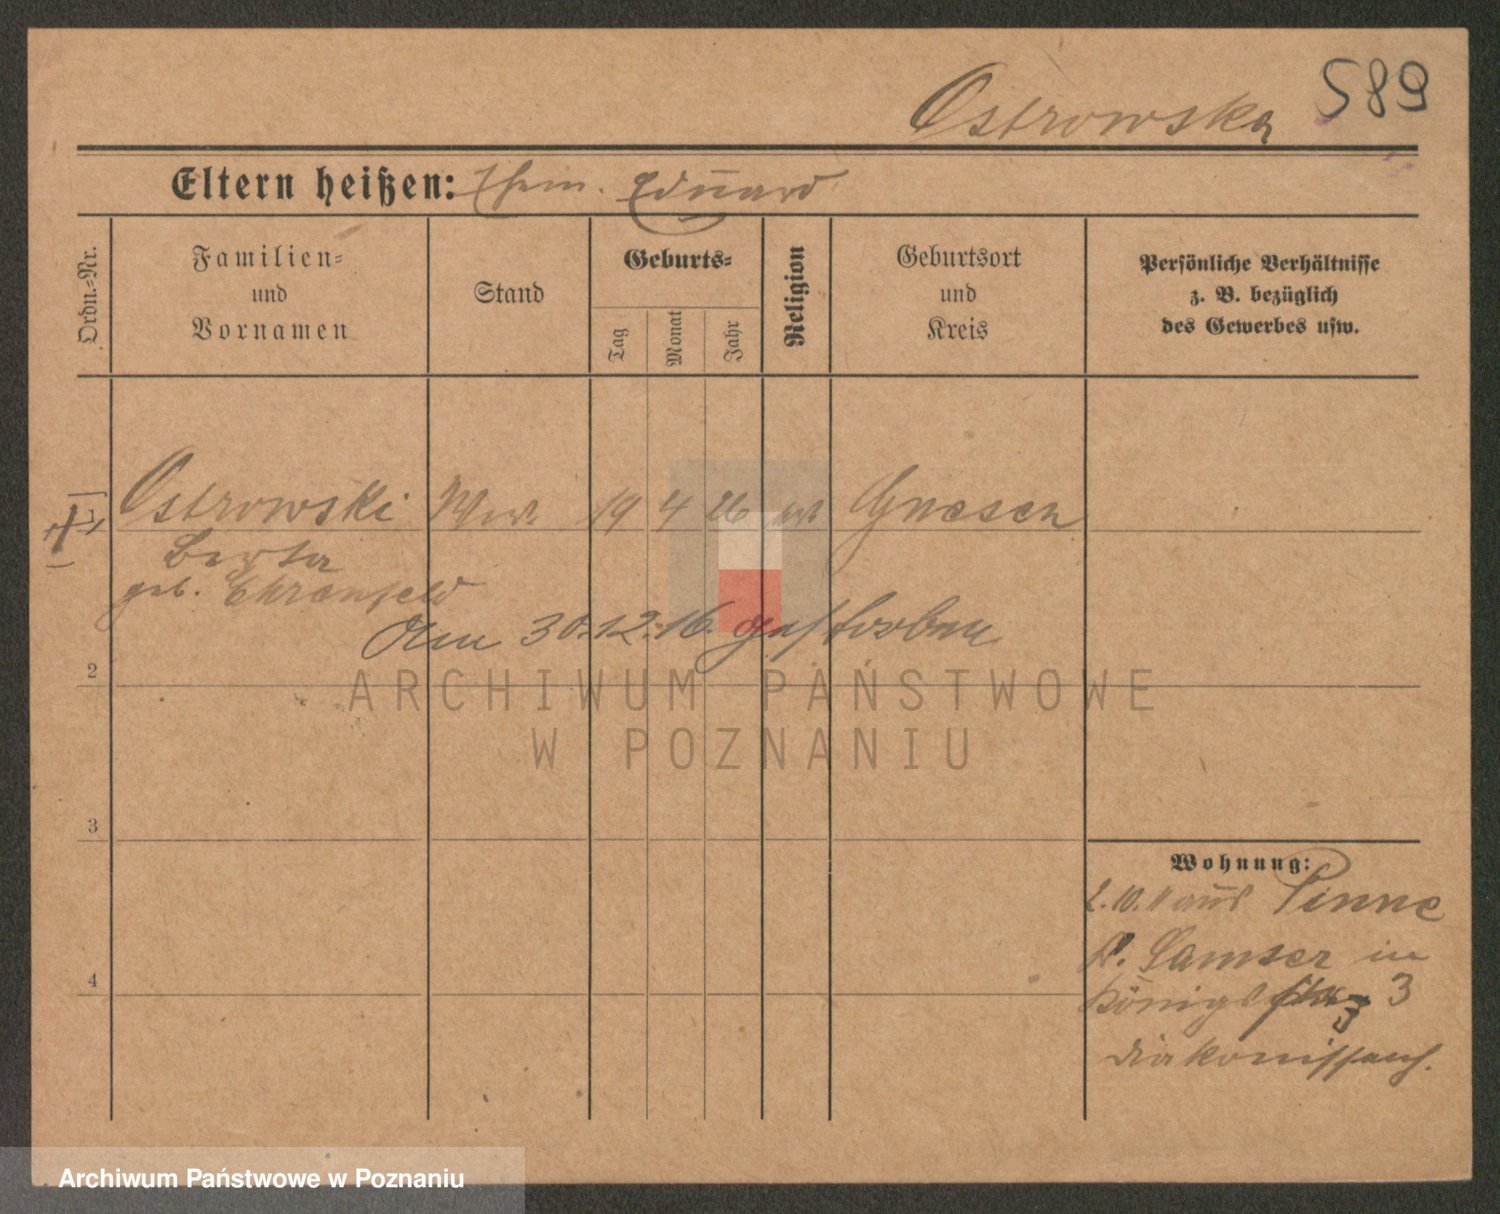 589
Ostrowska
Eltern heißen: Ehem. Eduard
Ordn.=Nr.
Familien=
und
Vornamen
Stand
Geburts=
Tag
Monat
Jahr
Religion
Geburtsort
und
Kreis
Persönliche Verhältnisse
z. B. bezüglich
des Gewerbes usw.
Ostrowski Wwe. 19 4 26 ev. Gnesen
Berta
geb. Ehrenfeld
Am 30.12.16. gestorben
2
ARCHIWUM PAŃSTWOWE
W POZNANIU
3
Wohnung:
2.10.11 aus Pinne
Samter in
4
Königstr. 3
Diakonissenh.
Archiwum Państwowe w Poznaniu